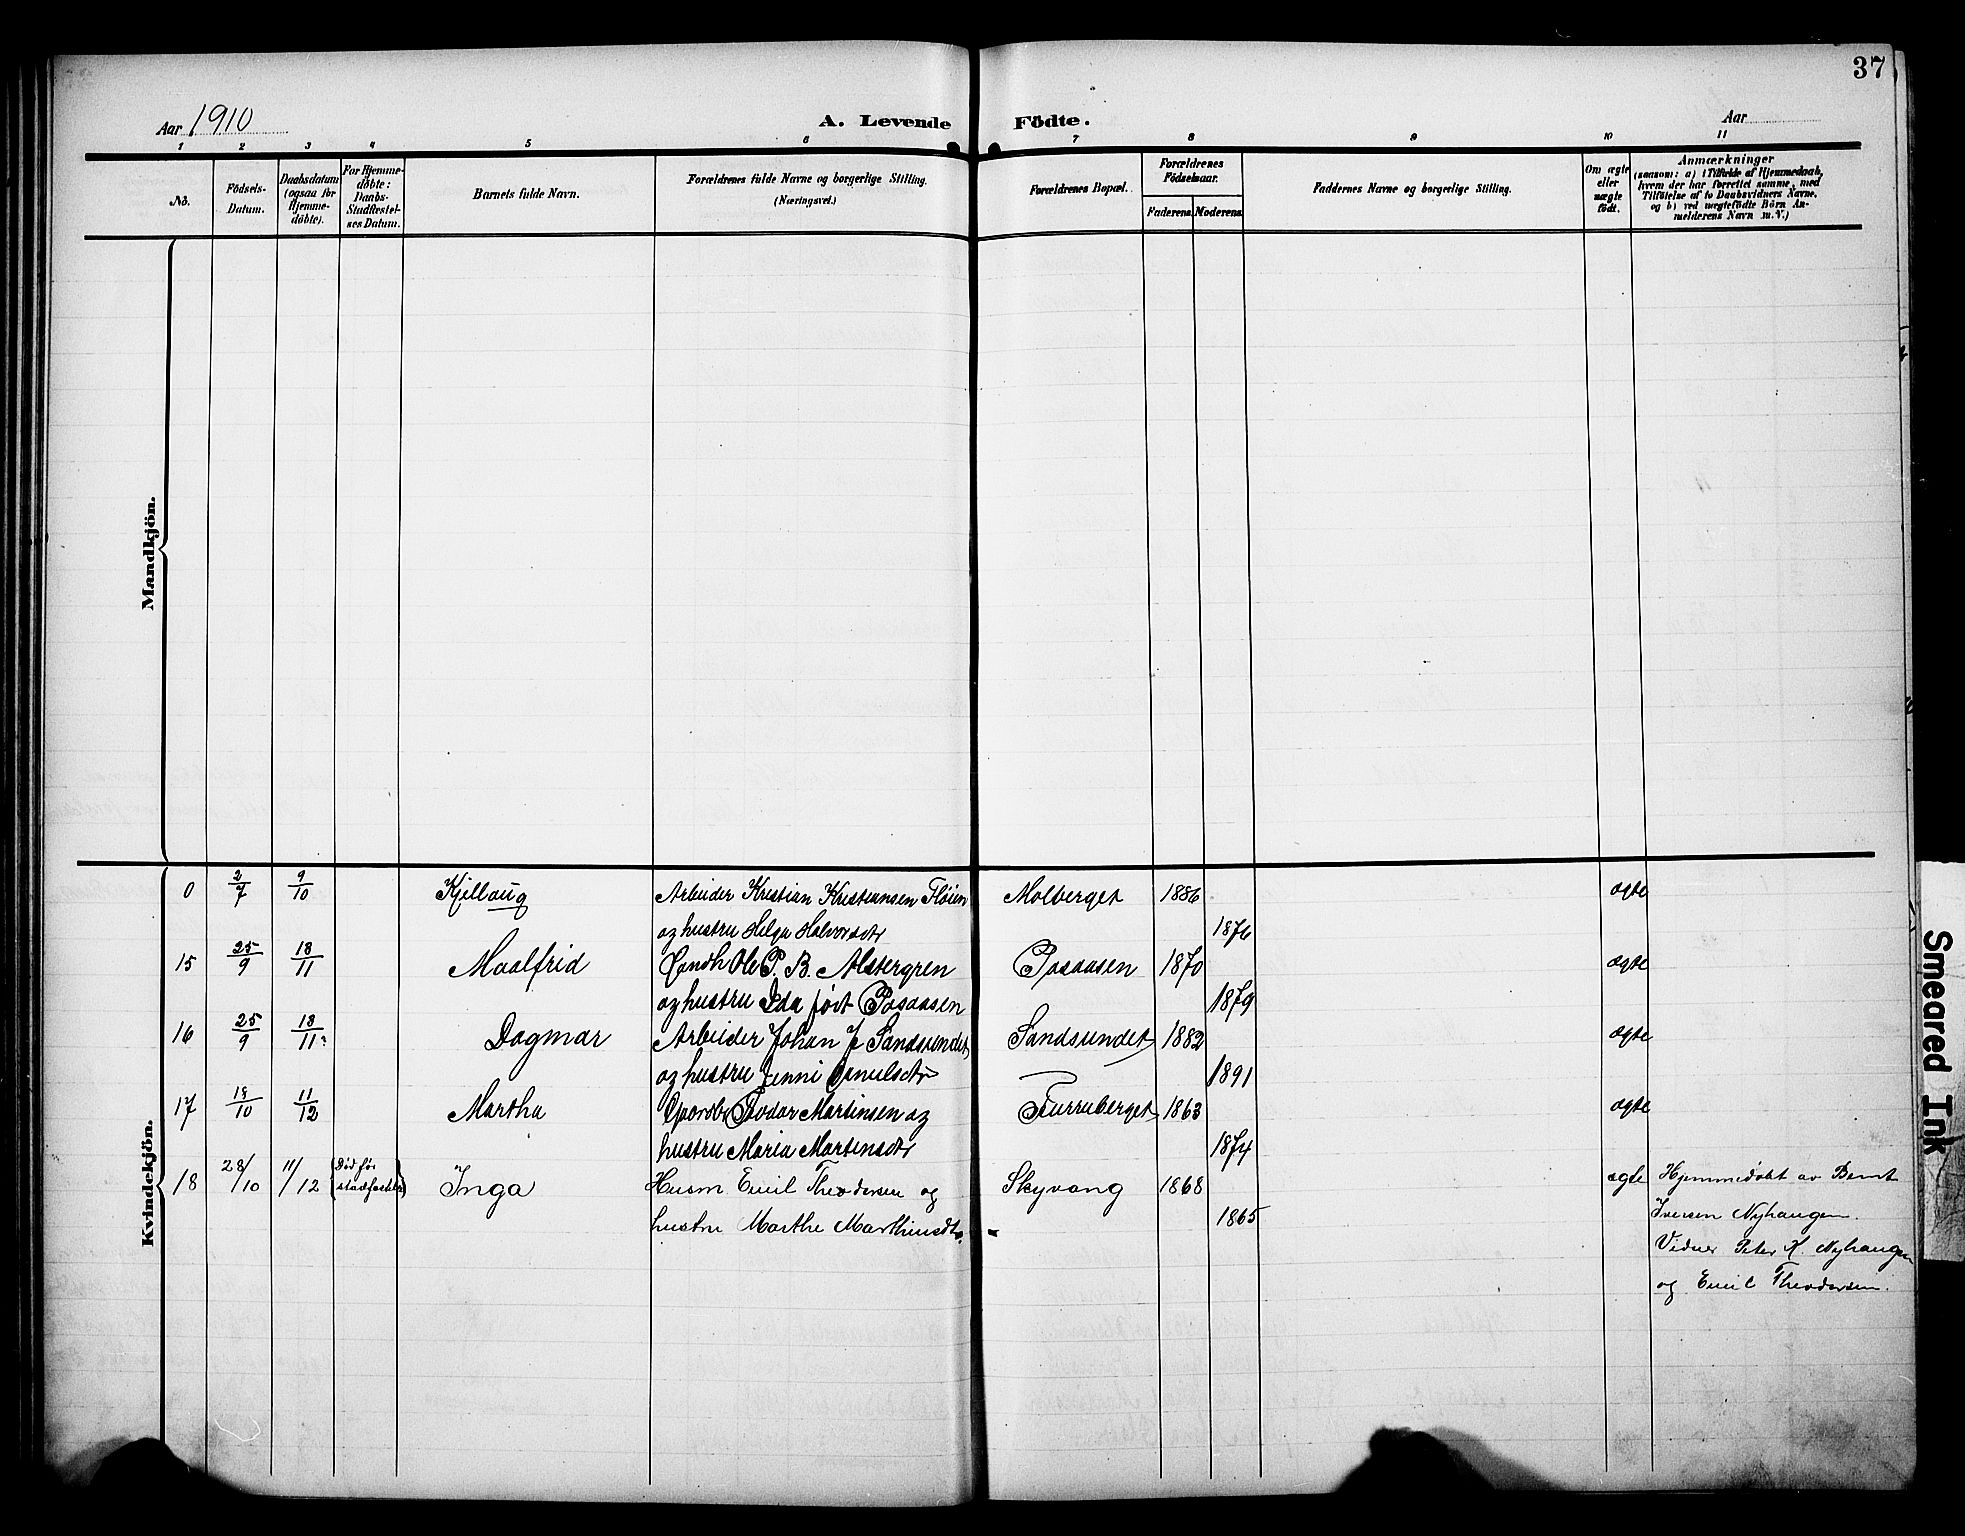 37
Aar 1910
A. Levende Födte.
Aar
1 2 3 4 5 6 7 8 9 10 11
No.
Födsels-
Datum.
Daabsdatum
(ogsaa for
Hjemme-
döbte).
For Hjemme-
döbte:
Daabs-
Stadfæstel-
ses Datum.
Barnets fulde Navn.
Forældrenes fulde Navne og borgerlige Stilling.
(Næringsvei.)
Forældrenes Bopæl.
Forældrenes
Födselsaar.
Faderens. Moderens.
Faddernes Navne og borgerlige Stilling.
Om ægte
eller
uægte
födt.
Anmærkninger
(saasom: a) i Tilfælde af Hjemmedaab,
hvem der har forrettet samme, med
Tilföielse af to Daabsvidners Navne,
og b) ved uægtefödte Börn An-
melderens Navn m.V.)
Mandkjön.
Kvindekjön.
0 2/7 9/10 Kjellaug Arbeider Kristian Kristiansen Fløien Molberget 1886 ægte
og hustru Helga Halvorsdtr 1876
15 25/9 18/11 Maalfrid Gaardb Ole P. B. Alstergren Posaasen 1870 ægte
og hustru Ida født Posaasen 1879
16 25/9 18/11 Dagmar Arbeider Johan J. Sandsundet Sandsundet 1882 ægte
og hustru Jenni 1891
17 19/10 11/12 Martha Gaardbr Martinsen og Furruberget 1863 ægte
hustru Maria Martinsdtr 1874
18 28/10 11/12 (Død før stadfæstelse) Inga Husm. Emil Theodorsen og Skyvang 1868 ægte Hjemmedøbt av Bernt
hustru Marthe Marthinsdtr. 1865 Iversen Nyhaugen.
Vidner Peter K. Nyhaugen
og Emil Theodorsen.
Smeared Ink